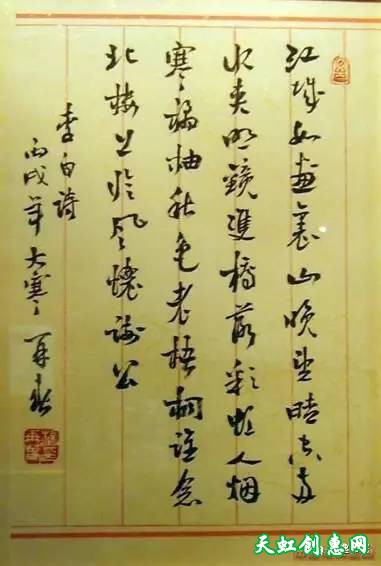 江城如畫裏山晚望晴空兩
水夾明鏡雙橋落彩虹人烟
寒橘柚秋色老梧桐誰念
北樓上臨風懷謝公
李白詩
丙戌年大寒
天虹创惠网